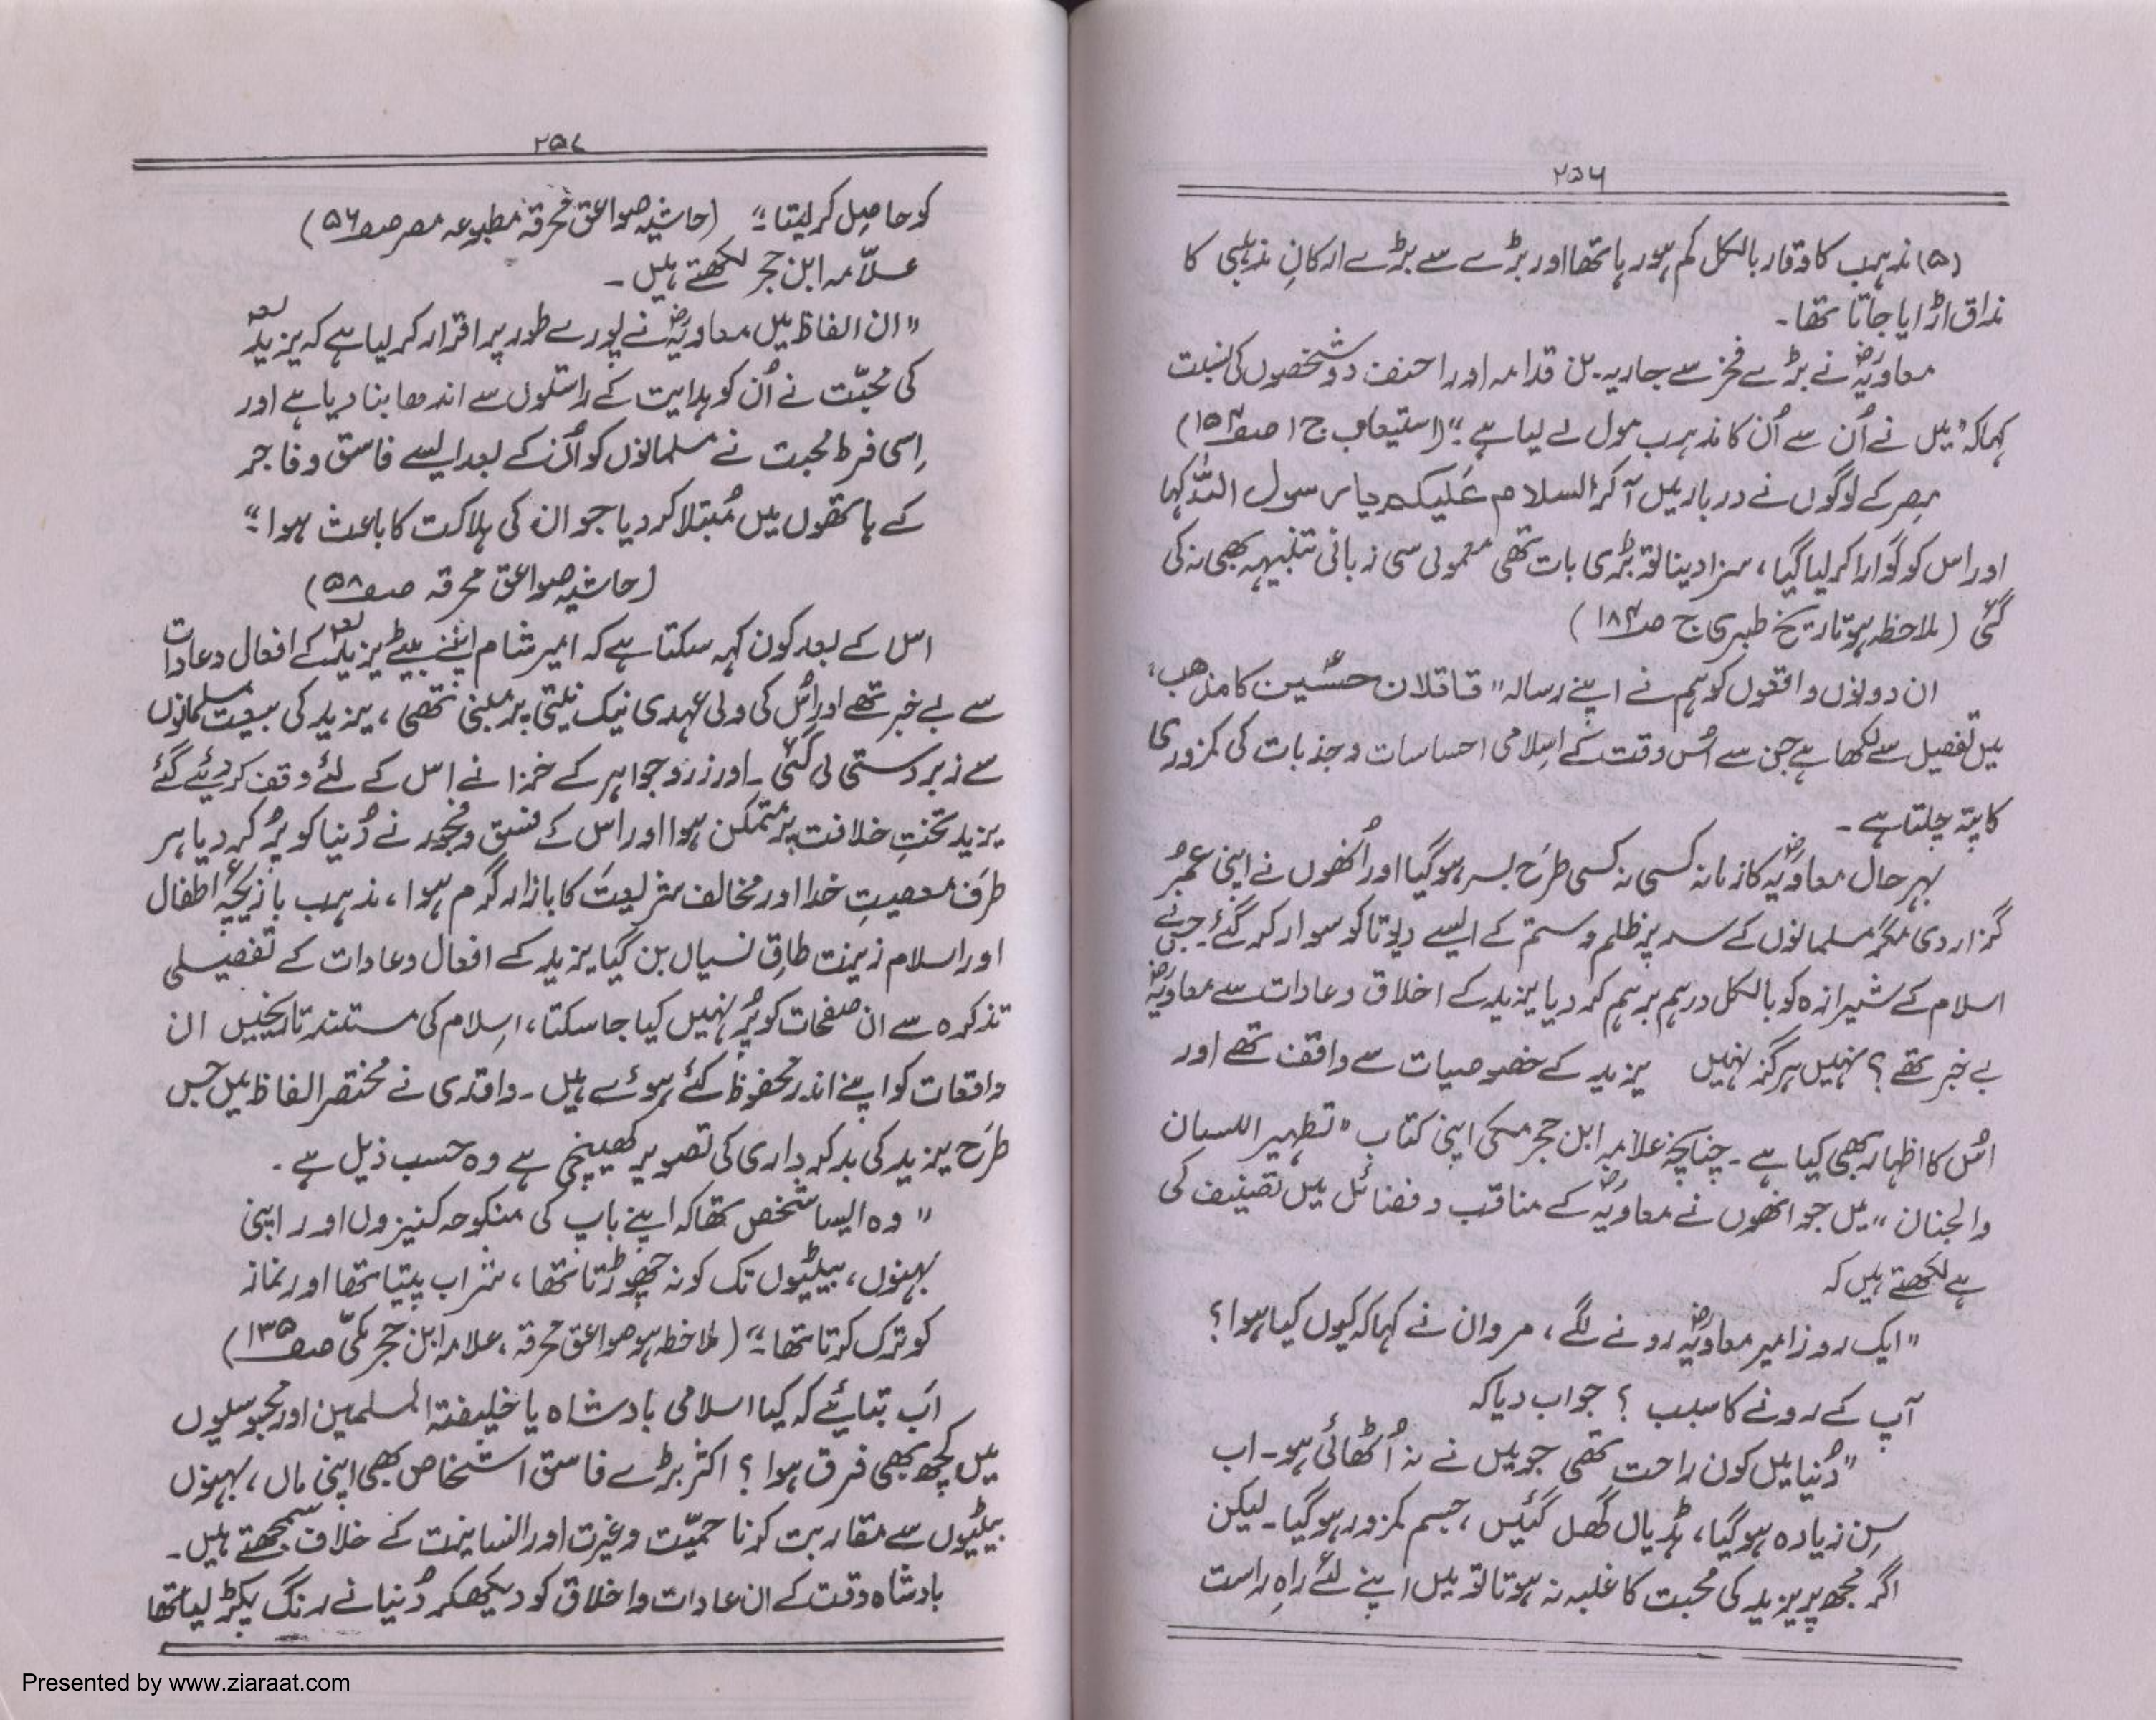 ۲۵۶
(۵) مذہب کا وقار بالکل کم ہو رہا تھا اور بڑے سے بڑے ارکانِ مذہبی کا
مذاق اڑایا جاتا تھا۔
معاویہؓ نے بڑے فخر سے جاریہ بن قدامہ اور احنف دو شخصوں کی نسبت
کہا کہ "میں نے اُن سے اُن کا مذہب مول لے لیا ہے" (استیعاب ج ۱ صفہ ۱۵۴)
مِصر کے لوگوں نے دربار میں آ کر السلام عَلیکم یا رسول اللہ کہا
اور اس کو گوارا کر لیا گیا، سزا دینا تو بڑی بات تھی معمولی سی زبانی تنبیہہ بھی نہ کی
گئی (ملاحظہ ہو تاریخ طبری ج صہ ۱۸۴)
ان دونوں واقعوں کو ہم نے اپنے رسالہ "قاتلان حسینؑ کا مذھب"
میں تفصیل سے لکھا ہے جن سے اُس وقت کے اِسلامی احساسات و جذبات کی کمزوری
کا پتہ چلتا ہے۔
بہر حال معاویہؓ کا زمانہ کسی نہ کسی طرَح بسر ہو گیا اور اُنھوں نے اپنی عُمر
گزار دی مگر مسلمانوں کے سر پر ظلم و ستم کے ایسے دیوتا کو سوار کر گئے۔ جس نے
اسلام کے شیرازہ کو بالکل درہم برہم کر دیا یزید کے اخلاق و عادات سے معاویہؓ
بے خبر تھے؟ نہیں ہر گز نہیں یزید کے خصوصیات سے واقف تھے اور
اُس کا اظہار بھی کیا ہے۔ چنانچہ علامہ ابن حجر مکی اپنی کتاب "تطہیر اللسان
والجنان" میں جو انھوں نے معاویہؓ کے مناقب و فضائل میں تصنیف کی
ہے لکھتے ہیں کہ
"ایک روز امیر معاویہؓ رونے لگے، مروان نے کہا کہ کیوں کیا ہوا؟
آپ کے رونے کا سبب؟ جواب دیا کہ
"دُنیا میں کون راحت تھی جو میں نے نہ اُٹھائی ہو۔ اب
سِن زیادہ ہو گیا، ہڈیاں گھل گئیں، جسم کمزور ہو گیا۔ لیکن
اگر مجھ پر یزید کی محبت کا غلبہ نہ ہوتا تو میں اپنے لئے راہِ راست
۲۵۷
کو حاصِل کر لیتا" (حاشیہ صواعق محرقہ مطبوعہ مصر صفہ ۵۶)
علّامہ ابن حجر لکھتے ہیں۔
"ان الفاظ میں معاویہؓ نے پورے طور پر اقرار کر لیا ہے کہ یزید لعہ
کی محبّت نے اُن کو ہدایت کے راستوں سے اندھا بنا دیا ہے اور
اِسی فرطِ محبت نے مسلمانوں کو اُن کے بعد ایسے فاسق و فاجر
کے ہاتھوں میں مُبتلا کر دیا جو ان کی ہلاکت کا باعث ہوا"
(حاشیہ صواعق محرقہ صفہ ۵۸)
اس کے بعد کون کہہ سکتا ہے کہ امیر شام اپنے بیٹے یزید لعہ کے افعال و عادات
سے بے خبر تھے اور اُس کی ولی عہدی نیک نیتی پر مبنی تھی، یزید کی بیعت مسلمانوں
سے زبردستی لی گئی۔ اور زر و جواہر کے خزانے اس کے لئے وقف کر دیئے گئے
یزید تختِ خلافت پر متمکن ہوا اور اس کے فسق و فجور نے دُنیا کو پُر کر دیا ہر
طرَف معصیتِ خدا اور مخالف شریعت کا بازار گرم ہوا، مذہب بازیچۂ اطفال
اور اسلام زینت طاقِ نسیاں بن گیا یزید کے افعال و عادات کے تفصیلی
تذکرہ سے ان صفحات کو پُر نہیں کیا جا سکتا، اِسلام کی مستند تاریخیں ان
واقعات کو اپنے اندر محفوظ کئے ہوئے ہیں۔ واقدی نے مختصر الفاظ میں جس
طرَح یزید کی بد کرداری کی تصویر کھینچی ہے وہ حسب ذیل ہے۔
"وہ ایسا شخص تھا کہ اپنے باپ کی منکوحہ کنیزوں اور اپنی
بہنوں، بیٹیوں تک کو نہ چھوڑتا تھا، شراب پیتا تھا اور نماز
کو ترک کرتا تھا" (ملاحظہ ہو صواعق محرقہ، علامہ ابن حجر مکیّ صفہ ۱۳۵)
اَب بتائیے کہ کیا اسلامی بادشاہ یا خلیفتہ المسلمین اور مجوسیوں
میں کچھ بھی فرق ہوا؟ اکثر بڑے فاسق اشخاص بھی اپنی ماں، بہنوں
بیٹیوں سے مقاربت کرنا حمیّت و غیرت اور انسانیت کے خلاف سمجھتے ہیں۔
بادشاہ وقت کے ان عادات و اخلاق کو دیکھکر دُنیا نے رنگ پکڑ لیا تھا
Presented by www.ziaraat.com